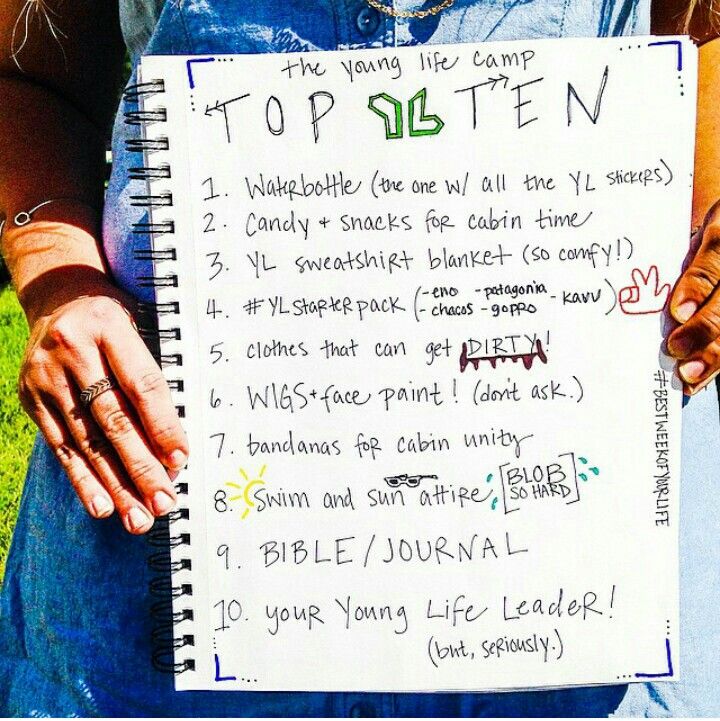 the young life camp
TOP YL TEN
1. Waterbottle (the one w/ all the YL stickers)
2. Candy + snacks for cabin time
3. YL sweatshirt blanket (so comfy!)
4. #YLstarterpack (-eno -patagonia -chacos -gopro -kavu)
5. clothes that can get DIRTY!
6. WIGS + face paint! (don't ask.)
7. bandanas for cabin unity
8. Swim and sun attire [BLOB SO HARD]
9. BIBLE/JOURNAL
10. your Young Life Leader!
(but, seriously.)
#BESTWEEKOFYOURLIFE